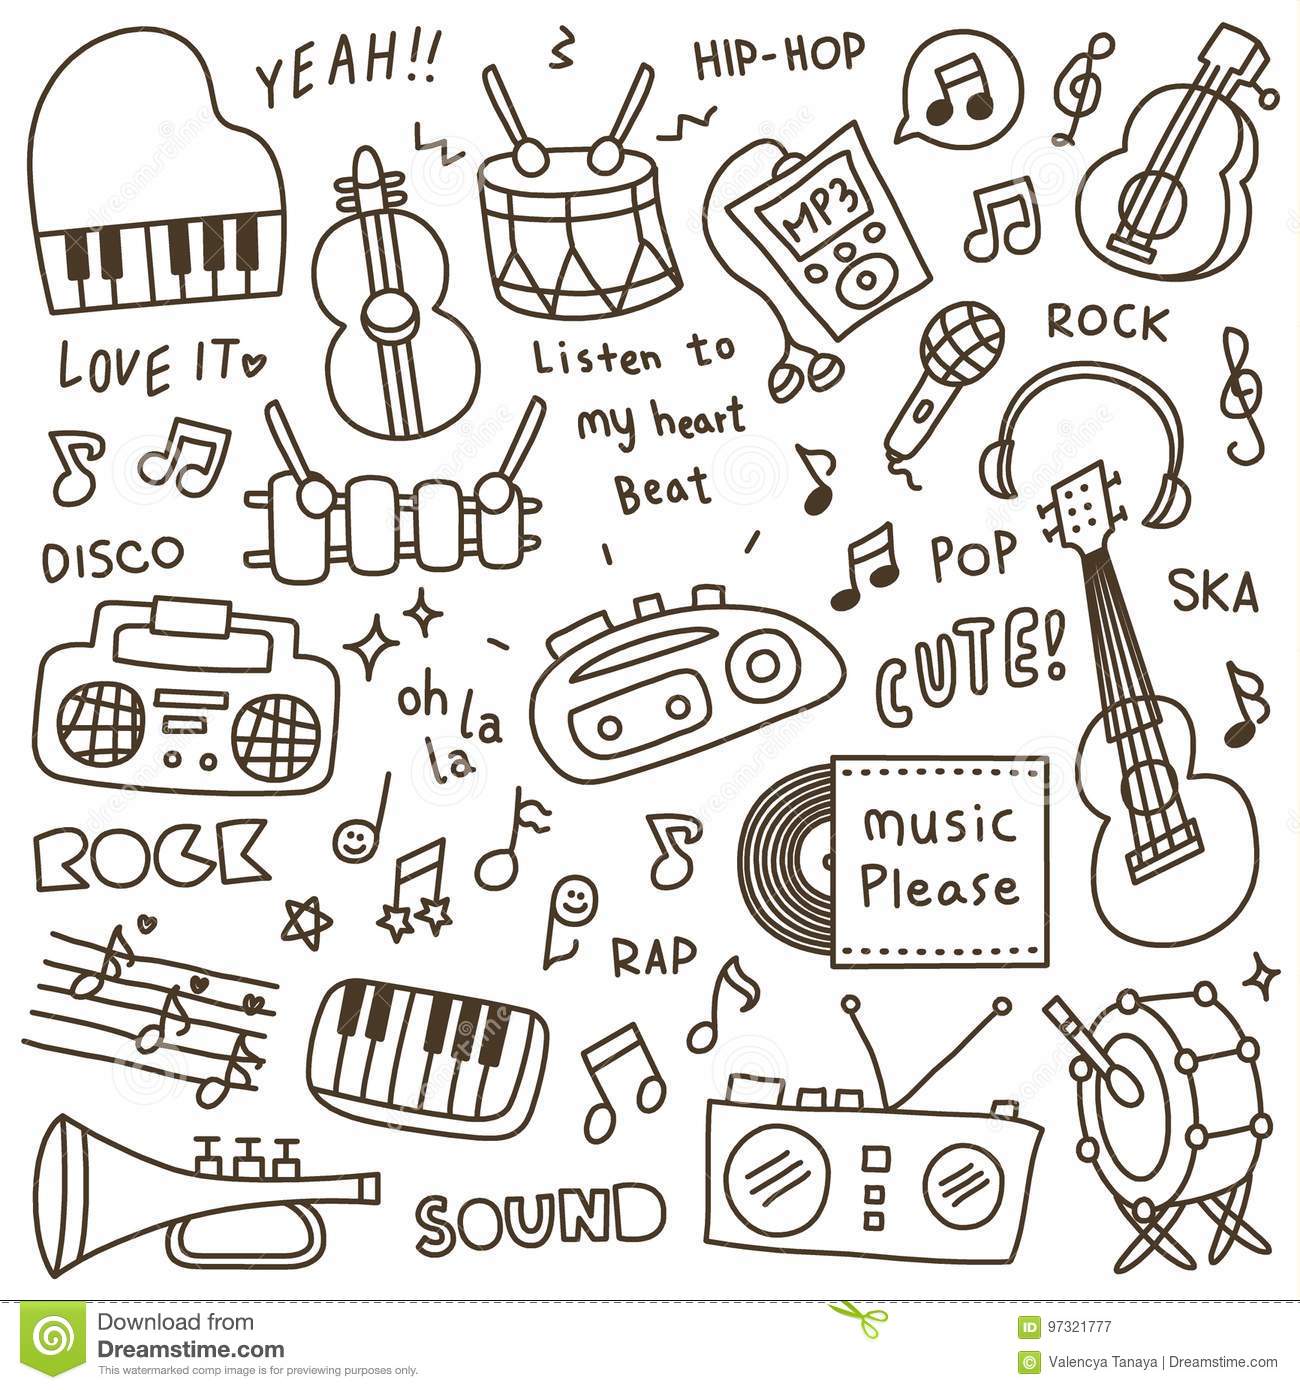 YEAH!!
HIP-HOP
MP3
ROCK
LOVE IT
Listen to
my heart
Beat
DISCO
POP
SKA
CUTE!
oh
la
la
ROCK
music
Please
RAP
SOUND
Download from
Dreamstime.com
This watermarked comp image is for previewing purposes only.
ID 97321777
© Valencya Tanaya | Dreamstime.com